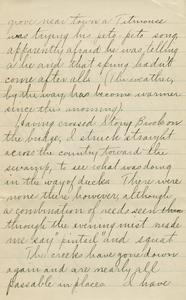 grove near town a Titmouse
was trying his peto, peto song,
apparently afraid he was telling
a lie and that spring hadn't
come after all. (The weather,
by the way, has become warmer
since this morning).
Having crossed Stony Brook on
the bridge, I struck straight
across the country toward the
swamp, to see what was doing
in the way of ducks. There were
none there, however, although
a combination of reeds seen
through the evening mist made
me say "pintail" and squat.
The creeks have gone down
again and are nearly all
passable in places. I have